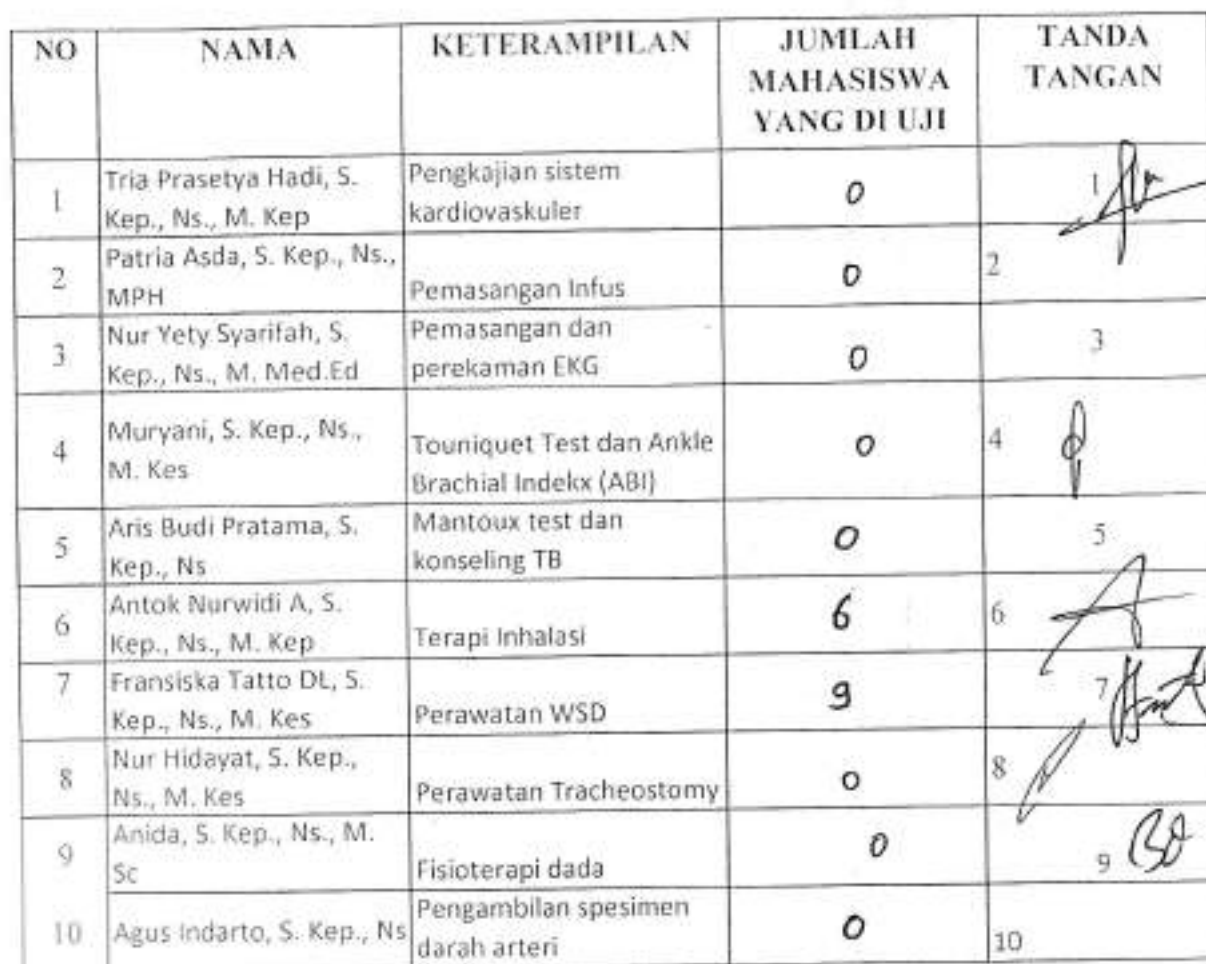 NO NAMA KETERAMPILAN JUMLAH MAHASISWA YANG DI UJI TANDA TANGAN
1 Tria Prasetya Hadi, S. Kep., Ns., M. Kep Pengkajian sistem kardiovaskuler 0 1
2 Patria Asda, S. Kep., Ns., MPH Pemasangan Infus 0 2
3 Nur Yety Syarifah, S. Kep., Ns., M. Med.Ed Pemasangan dan perekaman EKG 0 3
4 Muryani, S. Kep., Ns., M. Kes Touniquet Test dan Ankle Brachial Indekx (ABI) 0 4
5 Aris Budi Pratama, S. Kep., Ns Mantoux test dan konseling TB 0 5
6 Antok Nurwidi A, S. Kep., Ns., M. Kep Terapi Inhalasi 6 6
7 Fransiska Tatto DL, S. Kep., Ns., M. Kes Perawatan WSD 9 7
8 Nur Hidayat, S. Kep., Ns., M. Kes Perawatan Tracheostomy 0 8
9 Anida, S. Kep., Ns., M. Sc Fisioterapi dada 0 9
10 Agus Indarto, S. Kep., Ns Pengambilan spesimen darah arteri 0 10